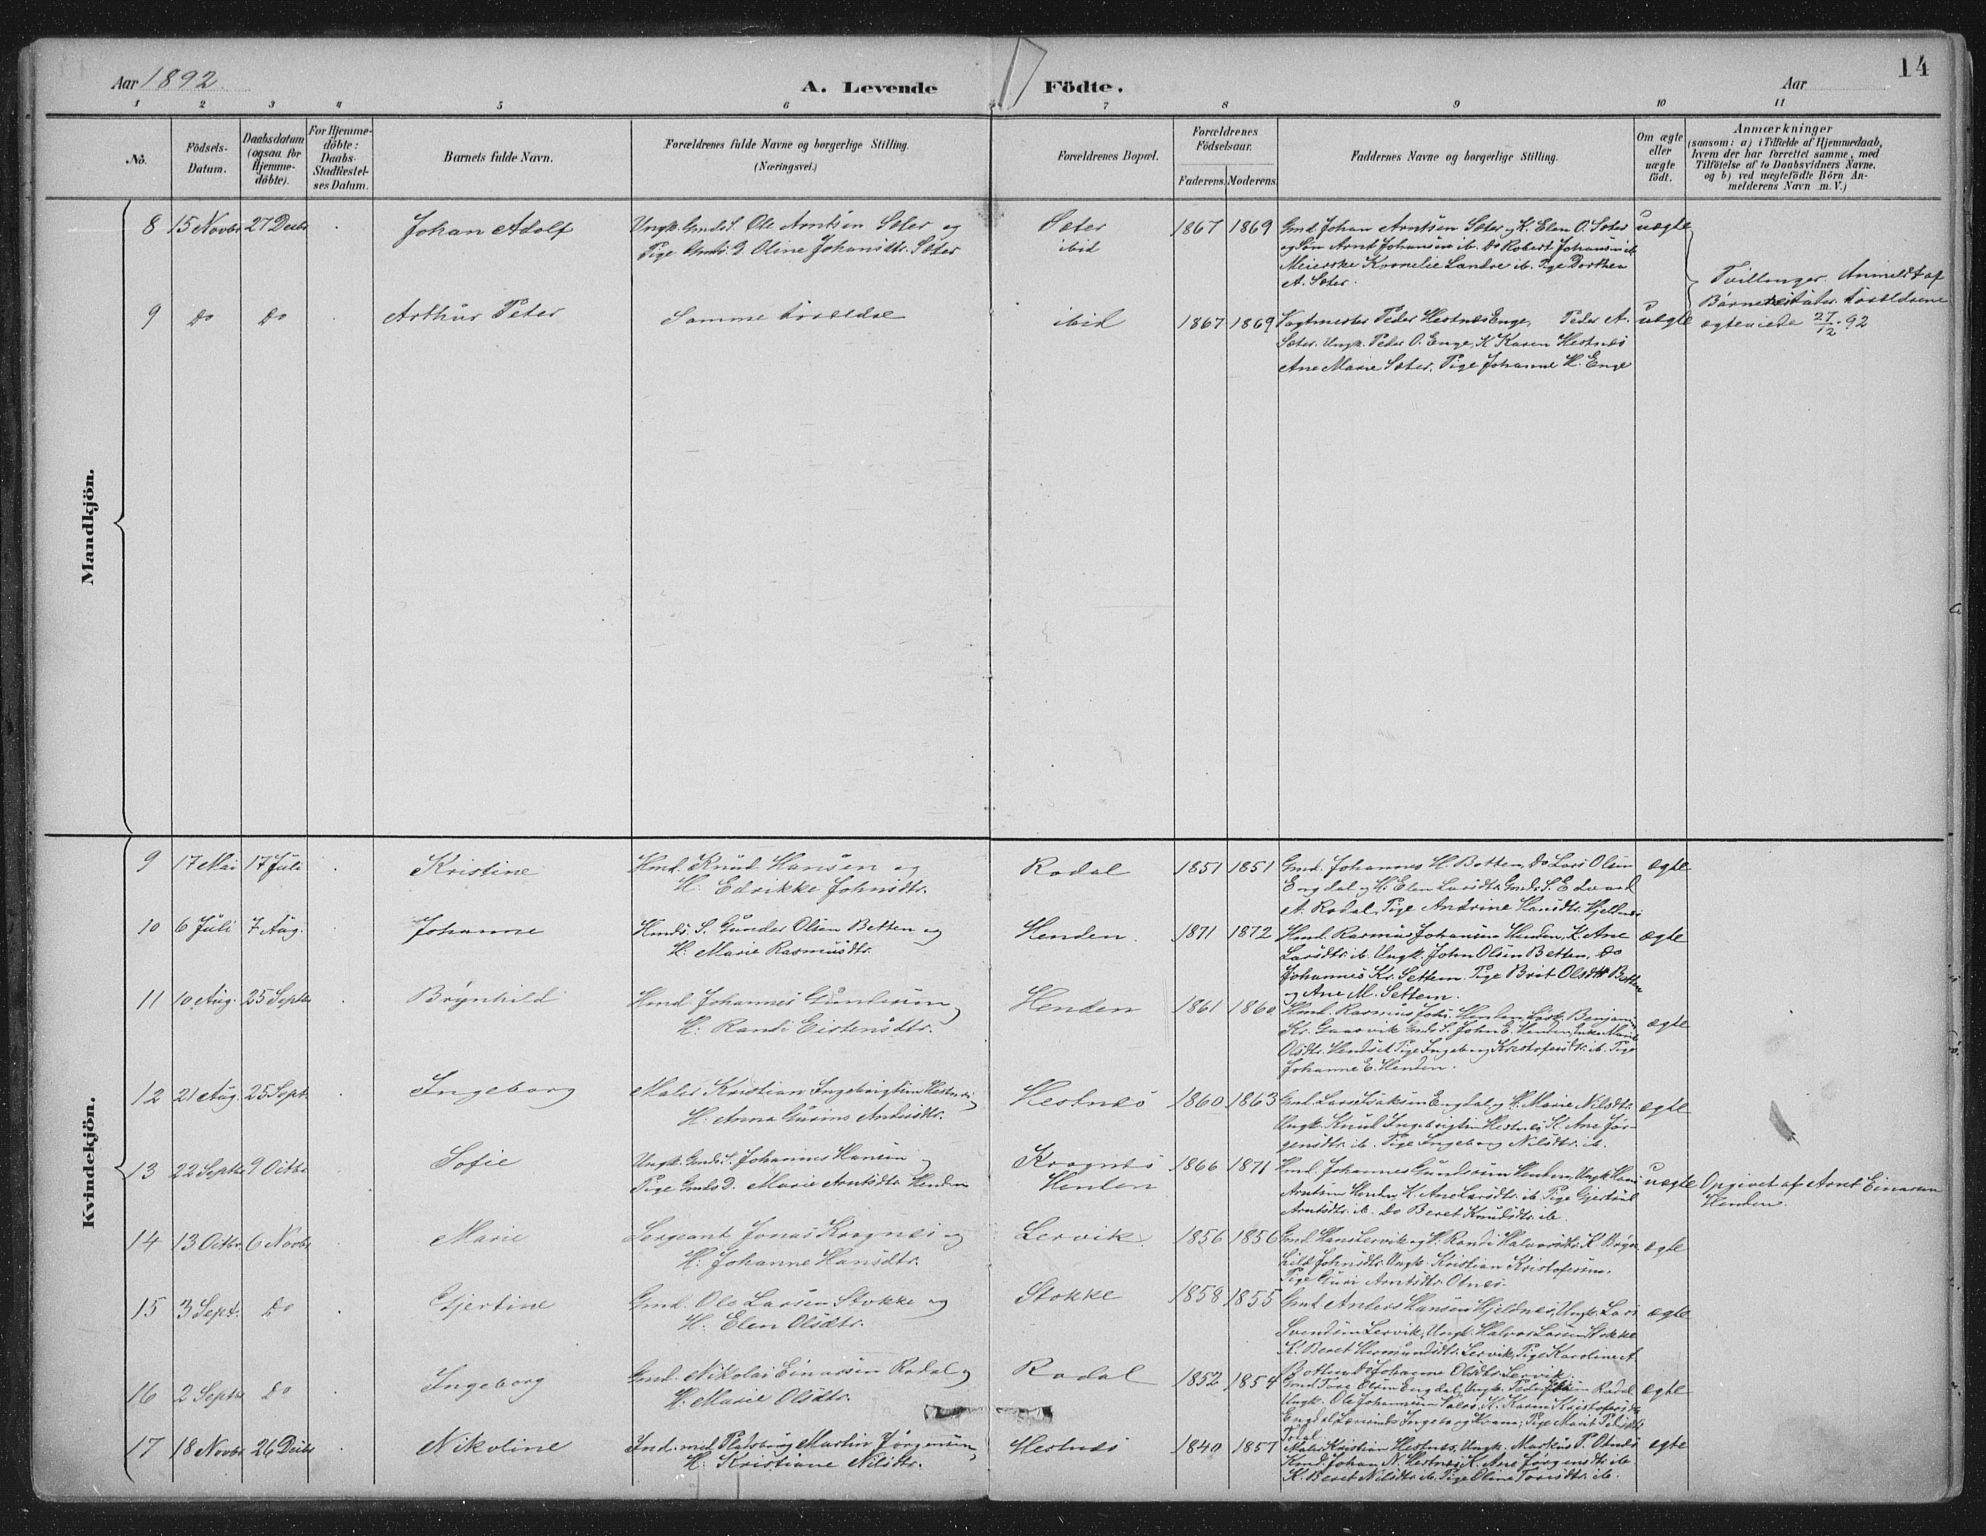 Aar 1892. A. Levende Födte. Aar 14
1 2 3 4 5 6 7 8 9 10 11
No. Födsels-Datum. Daabsdatum (ogsaa for Hjemme-döbte). For Hjemme-döbte: Daabs-Stadfæstel-ses Datum. Barnets fulde Navn. Forældrenes fulde Navne og borgerlige Stilling. (Næringsvei.) Forældrenes Bopæl. Forældrenes Födselsaar. Faderens. Moderens. Faddernes Navne og borgerlige Stilling. Om ægte eller uægte födt. Anmærkninger (saasom: a) i Tilfælde af Hjemmedaab, hvem der har forrettet samme, med Tilföielse af to Daabsvidners Navne. og b) ved uægtefödte Börn An-melderens Navn m. V.)
Mandkjön.
8 15 Novbr 27 Decbr Johan Adolf Ungk. Gmds. S. Ole Arntsen Sæter og Sæter 1867 1869 Gmd Johan Arntsen Sæter og K. Elen O. Sæter uægte
Pige Gmds. D. Oline Johansdtr. Sæter ibid og Søn Arnt Johansen ib. Do Robert Johansen ib.
Meierske Kornelie Landre ib. Pige Dorthea
A. Sæter.
Tvillinger. Anmeldt af
9 Do Do Arthur Peter Samme Forældre ibid 1867 1869 Vagtmester Peder Hestnes Enge, Peder A. uægte
Sæter. Ungk. Peder O. Enge, K Karen Hestnes
Ane Marie Sæter, Pige Johanne H. Enge
ægteviede 27/12 92
Kvindekjön.
9 17 Mai 17 Juli Kristine Hmd. Knud Hansen og Rodal 1851 1851 Gmd. Johannes H. Botten, Do Lars Olsen ægte
H. Edrikke Johnsdtr. Engdal og H. Elen Larsdtr. Gmds. S. Edvard
A. Rodal, Pige Andrine Hansdtr. Hjeldnes
10 6 Juli 7 Aug. Johanne Hmds. S. Gunder Olsen Betten og Henden. 1871 1872 Hmd. Rasmus Johansen Henden, K. Ane ægte
H. Marie Rasmusdtr. Larsdtr. ib. Ungk. John Olsen Betten, Do
Johannes Kr. Settem. Pige Brit Olsdtr Betten
og Ane M. Settem.
11 10 Aug. 25 Septbr Brynhild Hmd. Johannes Gundersen og Henden 1861 1860 Hmd. Rasmus Johs. Henden, Benjam. ægte
H. Randi Eistensdtr. Kr. Gaasvik Gmds. S. John E. Henden, Enke Marit
Olsdtr. Hendset Pige Ingeborg Kristofersdtr. ib. Pige
Johanne E. Henden.
12 21 Aug. 25 Septr. Ingeborg Maler Kristian Ingebrigtsen Hestnes og Hestnes 1860 1863 Gmd. Lars Isaksen Engdal og H. Marie Nilsdtr. ægte
H. Anna Gurine Andersdtr. Ungk. Knud Ingebrigtsen Hestnes K. Ane Jør-
gensdtr. ib. Pige Ingeborg Nilsdtr. ib.
13 22 Septbr 9 Octbr Sofie Ungk. Gmds. S. Johannes Hansen og Krognes 1866 1871 Hmd. Johannes Gundersen Henden, Ungk. Hans uægte Opgivet af Arnt Einarsen
Pige Gmds D. Marie Arntsdtr. Henden Henden Arntsen Henden, K. Ane Larsdtr. ib. Pige Gjertrud Henden.
Arntsdtr. ib. Do Beret Knudsdtr. ib.
14 13 Octbr. 6 Novbr Marie Sergeant Jonas Krognes og Lervik. 1856 1856 Gmd. Hans Lervik og H. Randi Halvorsdtr. K. Bryn- ægte
H. Johanne Hansdtr. hild Johnsdtr. Ungk. Kristian Kristofersen.
Pige Guri Arntsdtr. Otnes.
15 3 Sept. Do Gjertine Gmd. Ole Larsen Stokke og Stokke 1858 1855 Gmd. Anders Hansen Hjeldnes, Ungk. Lars ægte
H. Elen Olsdtr. Svendsen Lervik, Ungk. Halvor Larsen Stokke
K. Beret Hermundsdtr. Lervik, Pige Karoline A
Botten, Do Johanne Olsdtr. Lervik.
16 2 Septbr Do Ingeborg Gmd. Nikolai Einarsen Rodal og Rodal 1852 1854 Gmd. Tore Olsen Engdal, Ungk. Rodal ægte
H. Marie Olsdtr. Ungk. Ole Johannesen K. Karen Kristofersdtr.
Engdal Ingeborg Pige Marit
17 18 Novbr 26 Decbr Nikoline Ind. med Pladsbrug Martin Jørgensen, Hestnes 1840 1857 Maler Kristian Hestnes, Ungk. Markus P. Otnes ægte
H. Kristiane Nilsdtr. Hmd. Johan N. Hestnes K. Ane Jørgensdtr. ib
K. Beret Nilsdtr ib. Pige Oline Torisdtr. ib.